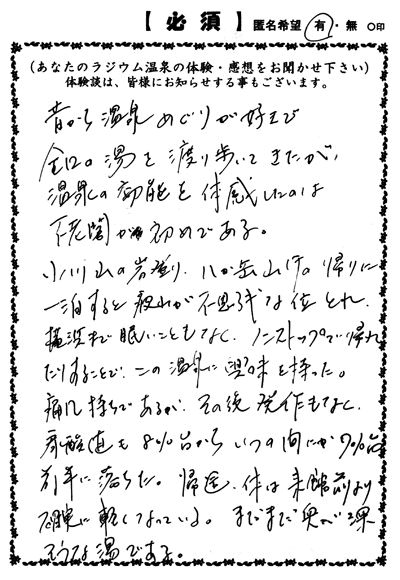 【必須】 匿名希望 有・無 ○印
(あなたのラジウム温泉の体験・感想をお聞かせ下さい)
体験談は、皆様にお知らせする事もございます。
昔から温泉めぐりが好きで
全国の湯を渡り歩いてきたが、
温泉の効能を体感したのは
不老閣が初めてである。
小川山の岩登り、八が岳山行の帰りに
一泊すると疲れが不思議な位とれ、
横浜まで眠いこともなく、ノンストップで帰れ
たりすることで、この温泉に興味を持った。
痛風持ちであるが、その後発作もなく、
尿酸値も8%台からいつの間にか7%台
前半に落ちた。帰途、体は来館前より
確実に軽くなっている。まだまだ奥が深
そうな湯である。